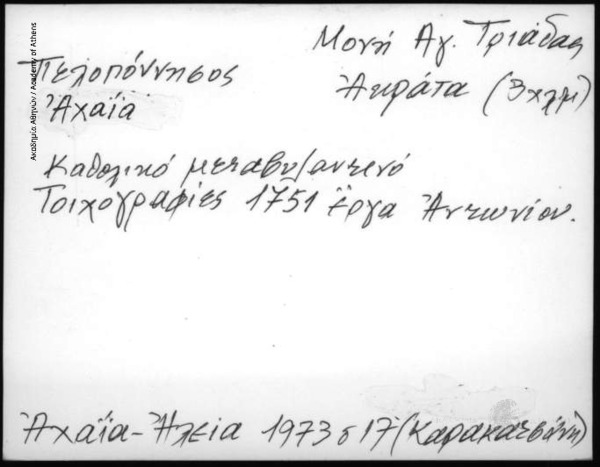 Μονή Αγ. Τριάδας
Πελοπόννησος
Ἀκράτα (3 χλμ)
Ἀχαΐα
Καθολικό μεταβυζαντινό
Τοιχογραφίες 1751 Ἔργα Ἀντωνίου.
Ἀχαΐα-Ἠλεία 1973 σ 17 (Καρακατσάνη)
Ακαδημία Αθηνών / Academy of Athens